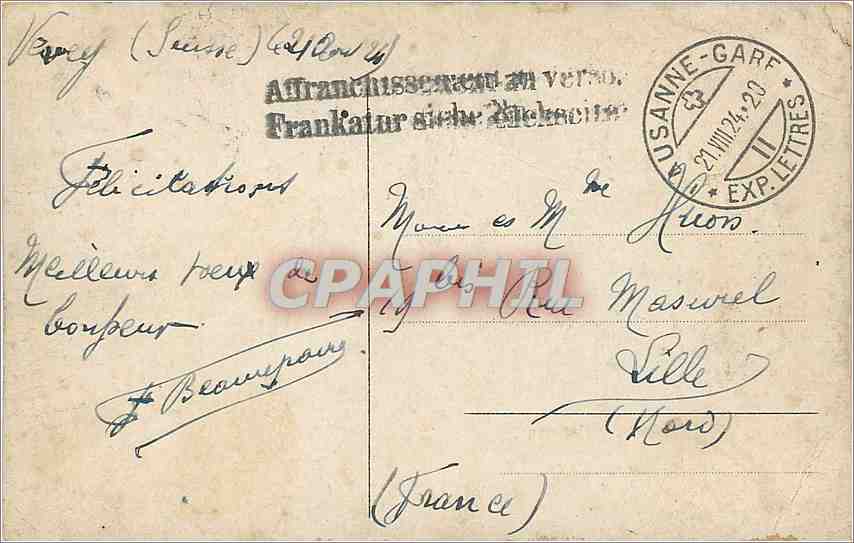 Vevey (Suisse) le 21 Août 24
Affranchissement au verso.
Frankatur siehe Rückseite
LAUSANNE-GARE
21.VIII.24.-20
II
* EXP. LETTRES *
Félicitations
Meilleurs voeux de
bonheur
F Beaurepaire
M et Mme Huon
bis Rue Masurel
Lille
(Nord)
(France)
CPAPHIL